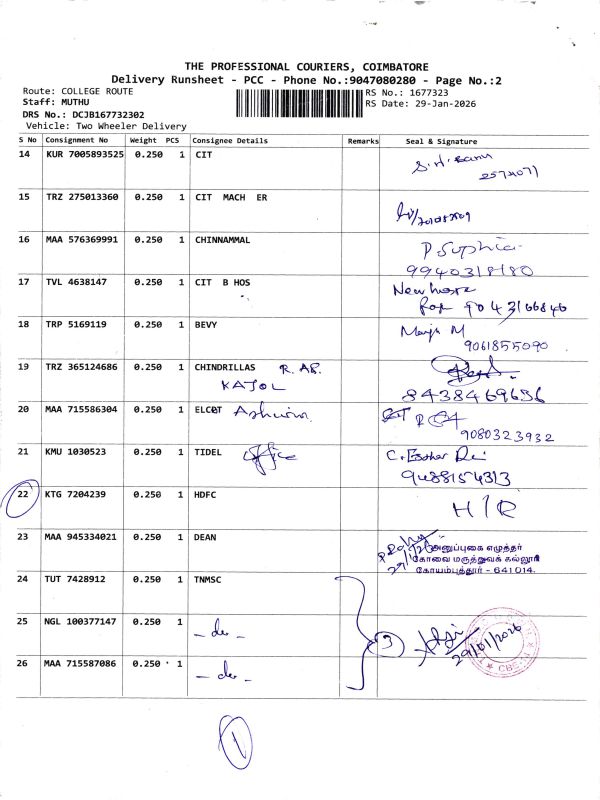 THE PROFESSIONAL COURIERS, COIMBATORE
Delivery Runsheet - PCC - Phone No.:9047080280 - Page No.:2
Route: COLLEGE ROUTE
RS No.: 1677323
Staff: MUTHU
RS Date: 29-Jan-2026
DRS No.: DCJB167732302
Vehicle: Two Wheeler Delivery
S No Consignment No Weight PCS Consignee Details Remarks Seal & Signature
14 KUR 7005893525 0.250 1 CIT
15 TRZ 275013360 0.250 1 CIT MACH ER
16 MAA 576369991 0.250 1 CHINNAMMAL P. Sophia
9940318180
17 TVL 4638147 0.250 1 CIT B HOS
18 TRP 5169119 0.250 1 BEVY M
9061855090
19 TRZ 365124686 0.250 1 CHINDRILLAS
KAJOL 8438469656
20 MAA 715586304 0.250 1 ELCOT Ashwin
9080323932
21 KMU 1030523 0.250 1 TIDEL office C. Esther
9488154313
22 KTG 7204239 0.250 1 HDFC H/R
23 MAA 945334021 0.250 1 DEAN அனுப்புகை எழுத்தர்
கோவை மருத்துவக் கல்லூரி
கோயம்புத்தூர் - 641 014.
24 TUT 7428912 0.250 1 TNMSC
25 NGL 100377147 0.250 1 - do - 3 29/01/2026
CBE
26 MAA 715587086 0.250 1 - do -
1